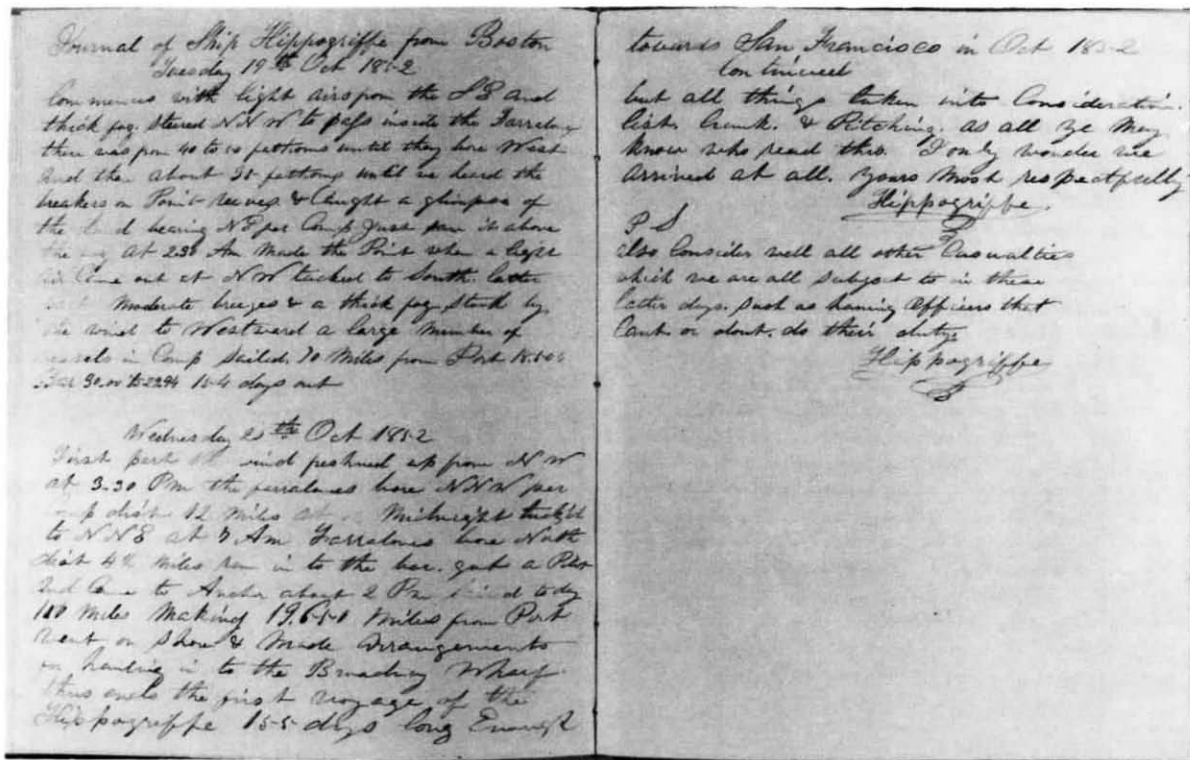 Journal of Ship Hippogriffe from Boston
Tuesday 19th Oct 1852
Commences with light airs from the S E and
thick fog. steered N N W to pass inside the Farralones
there was from 40 to fathoms until they bore West
and then about 30 fathoms until we heard the
breakers on Point reeves & Caught a glimpse of
the land bearing N E per Comp Just saw it above
the fog At 2.30 Am Made the Point when a light
air Came out at N W tacked to South. latter
part Moderate breezes & a thick fog. stood by
the wind to Westward a large Number of
vessels in Comp Sailed. 70 Miles from Port
Bar 30.00 to 154 days out
Wednesday 20th Oct 1852
First part the wind freshned up from N W
at 3.30 Pm the farralones bore N N W per
Comp dist 12 Miles at Midnight tacked
to N N E at 7 Am Farralones bore North
dist 4 Miles ran in to the bar. got a Pilot
and Came to Anchor about 2 Pm Sailed to day
100 Miles Making 19.650 Miles from Port
went on shore & Made Arrangements
on hauling in to the Broadway Wharf
thus ends the first voyage of the
Hippogriffe 155 days long Enough
towards San Francisco in Oct 1852
Continued
but all things taken into Consideration.
list. Crank. & Pitching. as all ye May
know who read this. I only wonder we
arrived at all. Yours Most respectfully
Hippogriffe.
P S
also Consider well all other Casualties
which we are all subject to in these
latter days. such as having Officers that
Cant or dont. do their duty
Hippogriffe